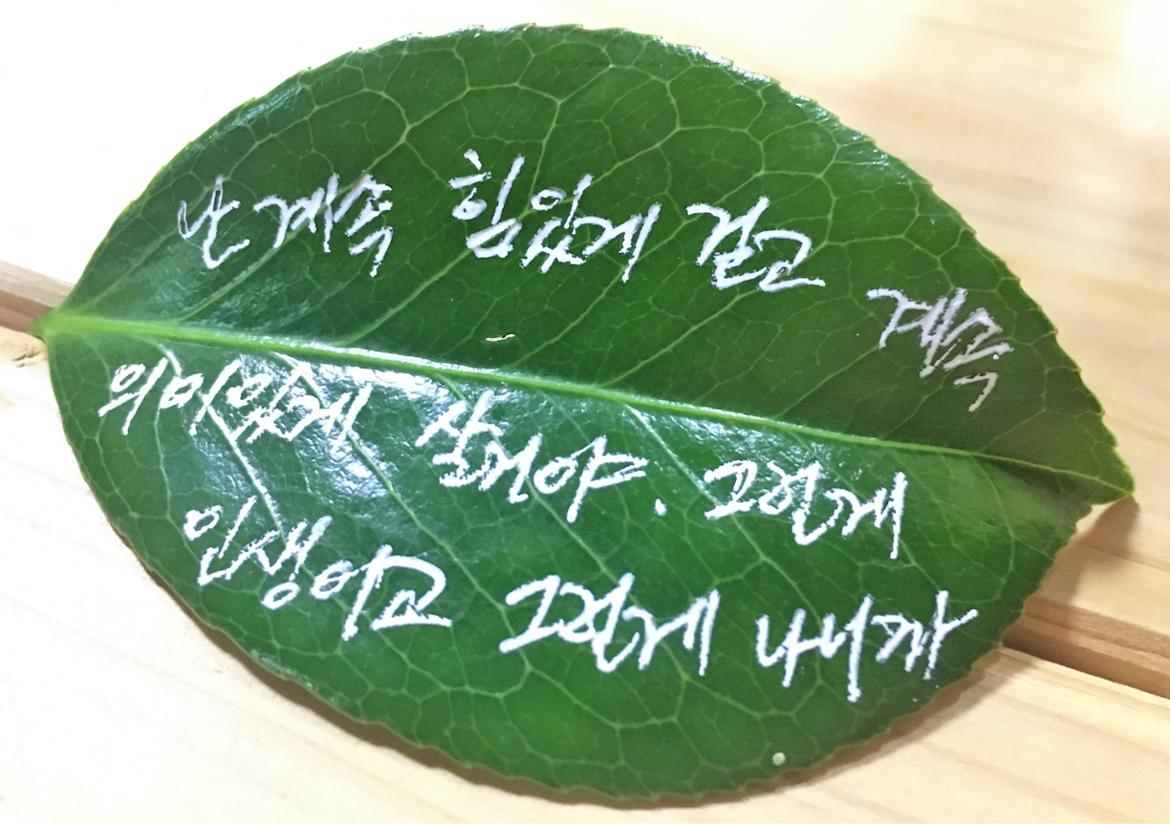 난 계속 힘있게 걷고 계속
의미있게 살거야. 그런게
인생이고 그런게 나니까